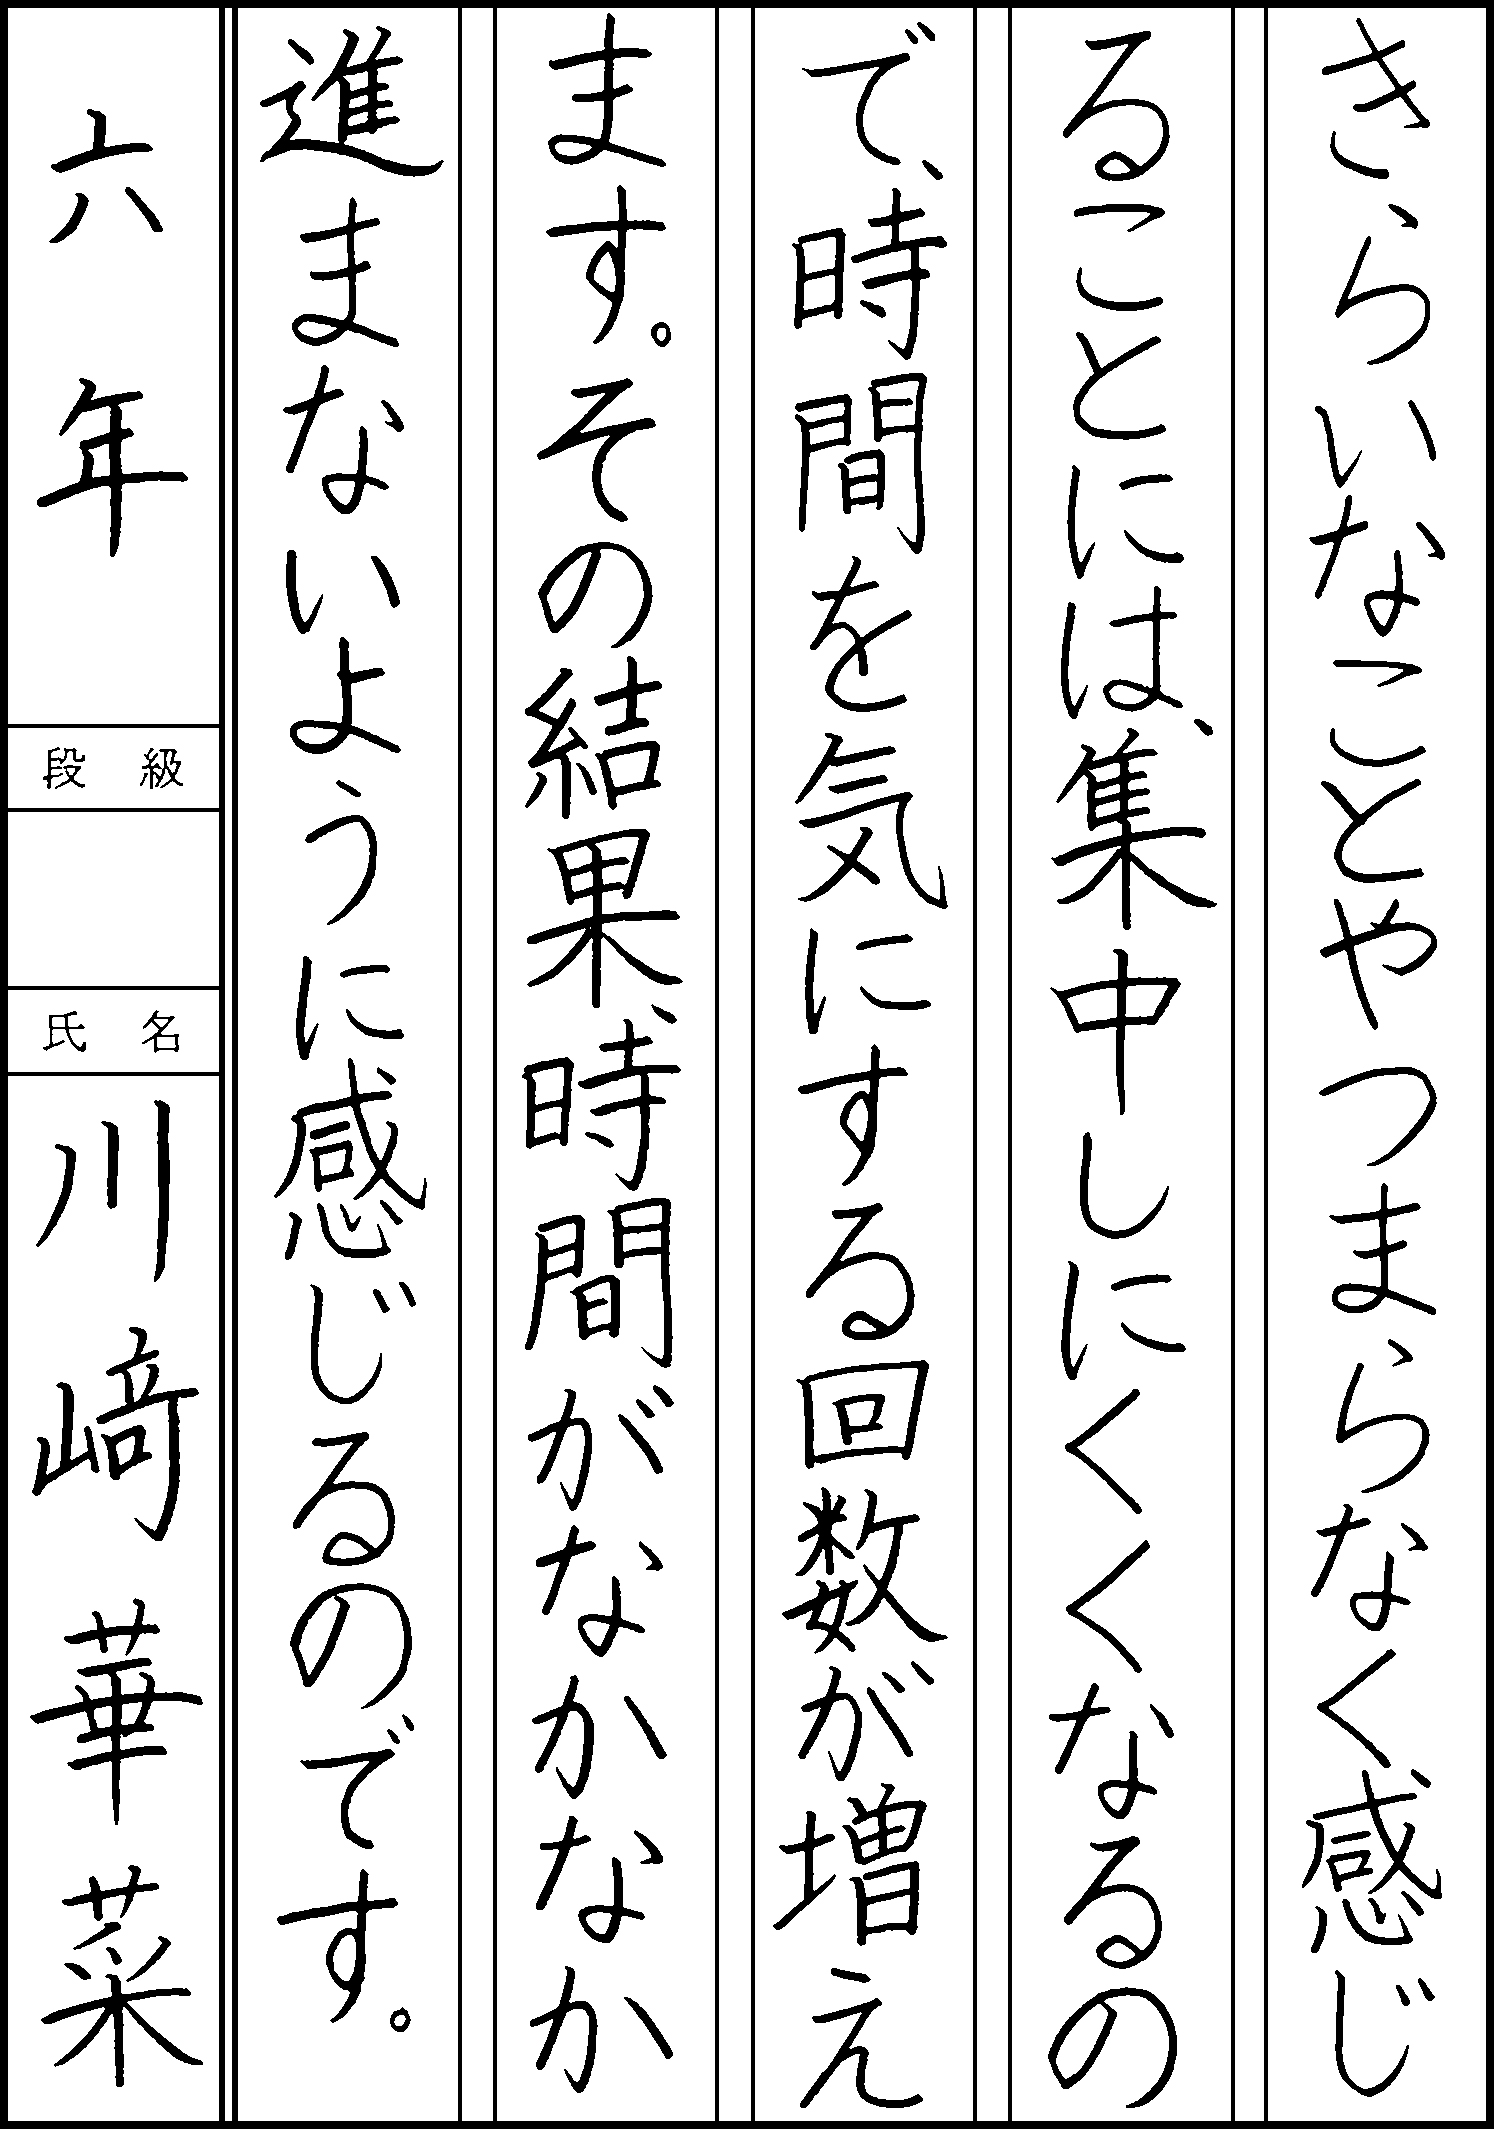 きらいなことやつまらなく感じ
ることには、集中しにくくなるの
で、時間を気にする回数が増え
ます。その結果、時間がなかなか
進まないように感じるのです。
六年
段級
氏名
川﨑華菜